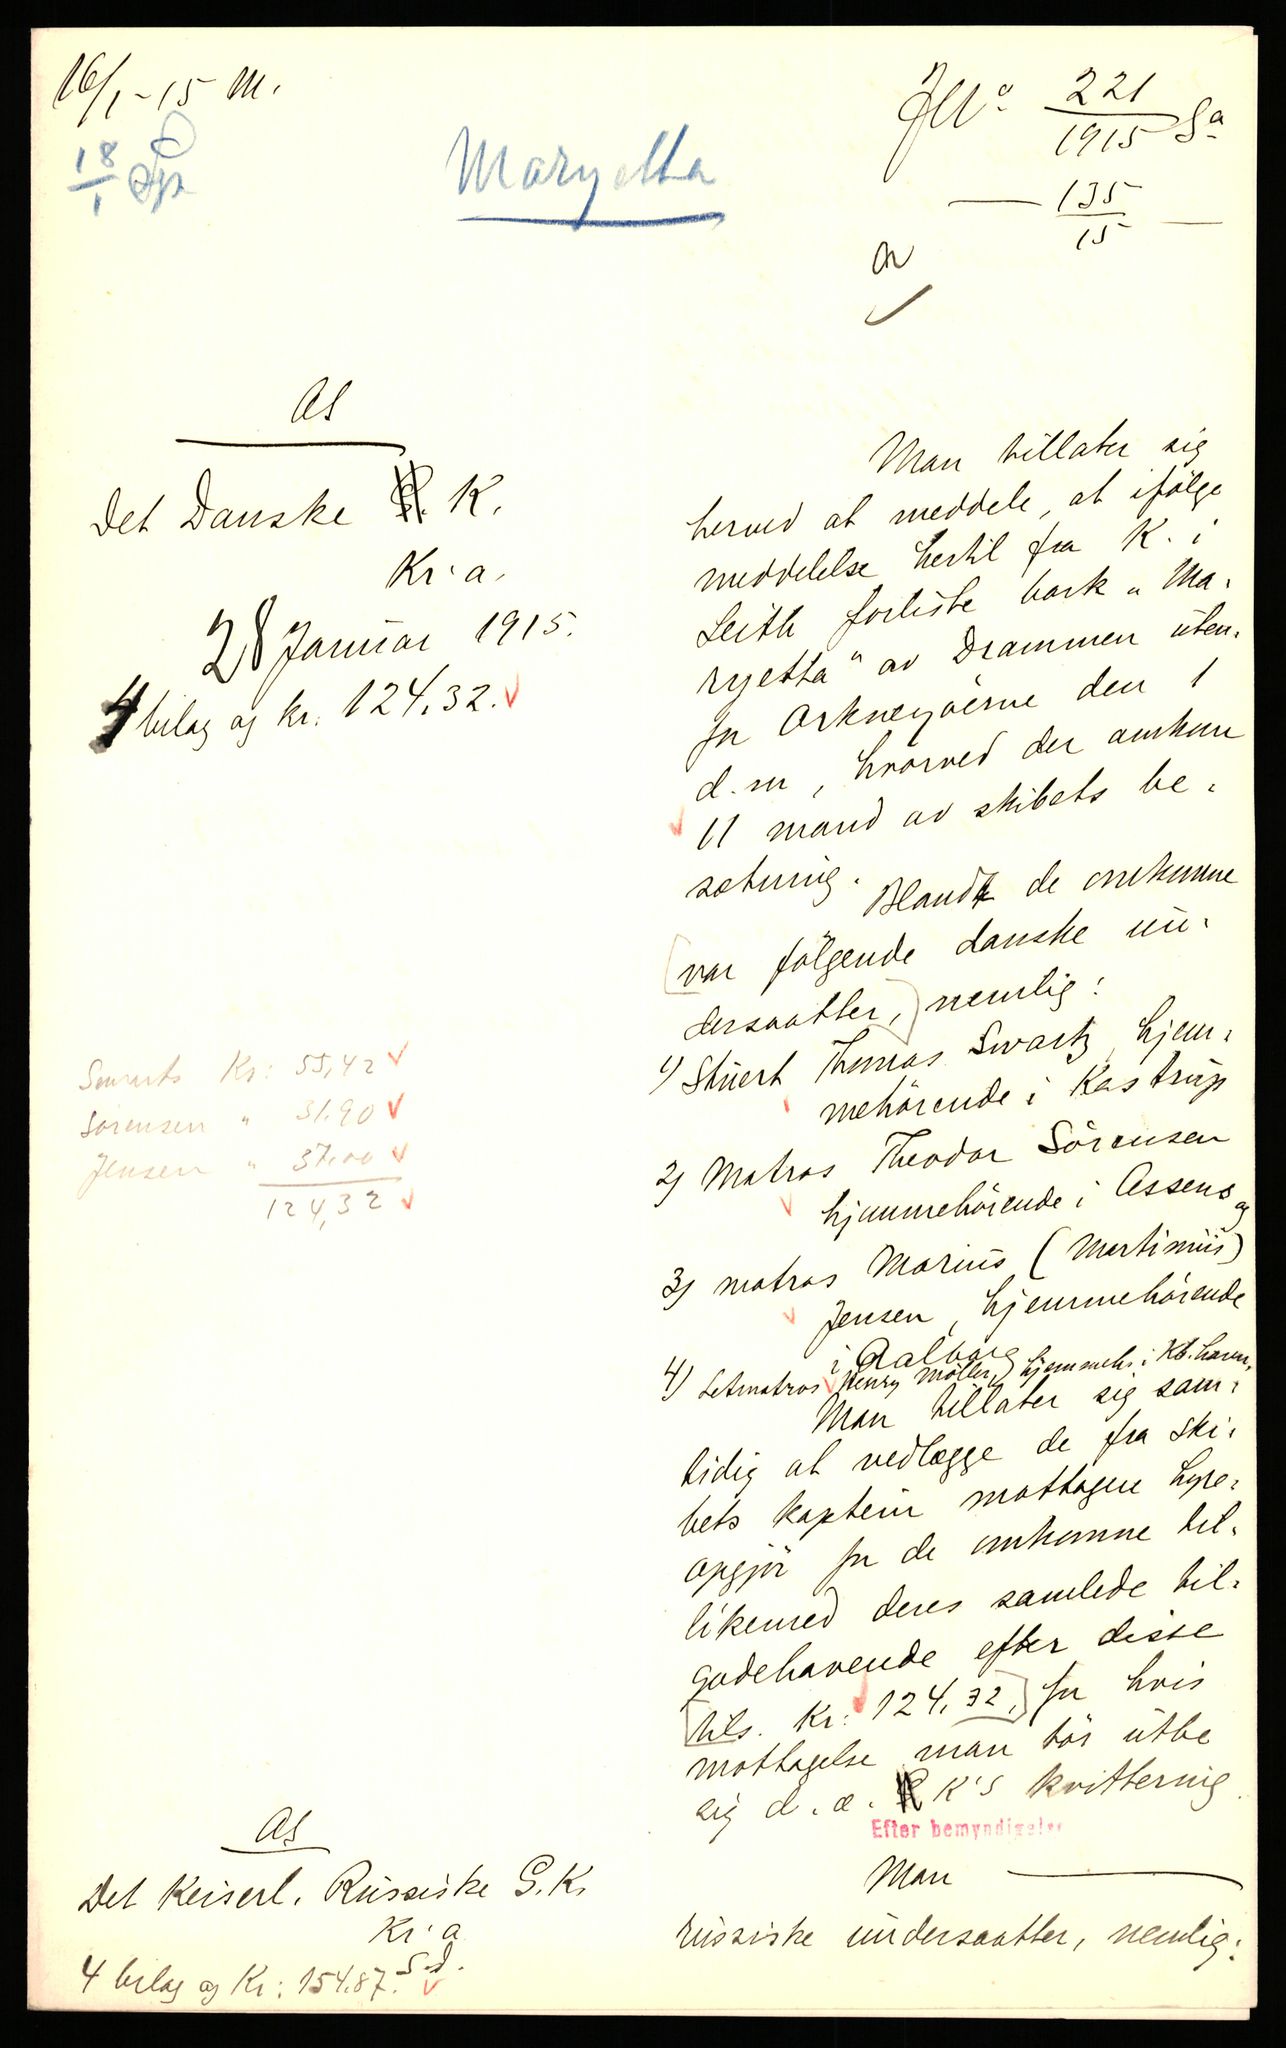 16/1-15 M.
18/1
Maryetta
JNo 221/1915 Sa
— 135/15 —
AS
Det Danske K.
Kr:a.
28 Januar 1915.
4 bilag og kr. 124.32.
Man tillater sig
herved at meddele, at ifölge
meddelelse hertil fra K. i
Leith forliste bark "Ma-
ryetta" av Drammen uten-
for Orknøyerne den 1
d.m, hvorved der omkom
11 mand av skibets be-
sætning.
Blandt de omkomne
(var følgende danske un-
dersaatter,) nemlig:
1) Stuert Thomas Swartz, hjem-
mehørende i Kastrup
2) Matros Theodor Sörensen
hjemmehörende i Assens og
3) matros Marius (Martinus)
Jensen, hjemmehörende
i Aalborg
4) Letmatros Henry Möller, hjemmeh. i Kb.havn.
Man tillater sig sam-
tidig at vedlægge de fra ski-
bets kaptein mottagne hyre-
opgjör for de omkomne til-
likemed deres samlede til-
godehavende efter disse
[tils. Kr: 124.32,] for hvis
mottagelse man tör utbe
sig d. æ. K's kvittering.
Efter bemyndigelse
Swarts Kr: 55,42
Sörensen " 31.90
Jensen " 37.00
124,32
AS
Det Keiserl. Russiske G.K.
Kr:a
S.d.
4 bilag og Kr: 154.87.
Man —
russiske undersaatter, nemlig: